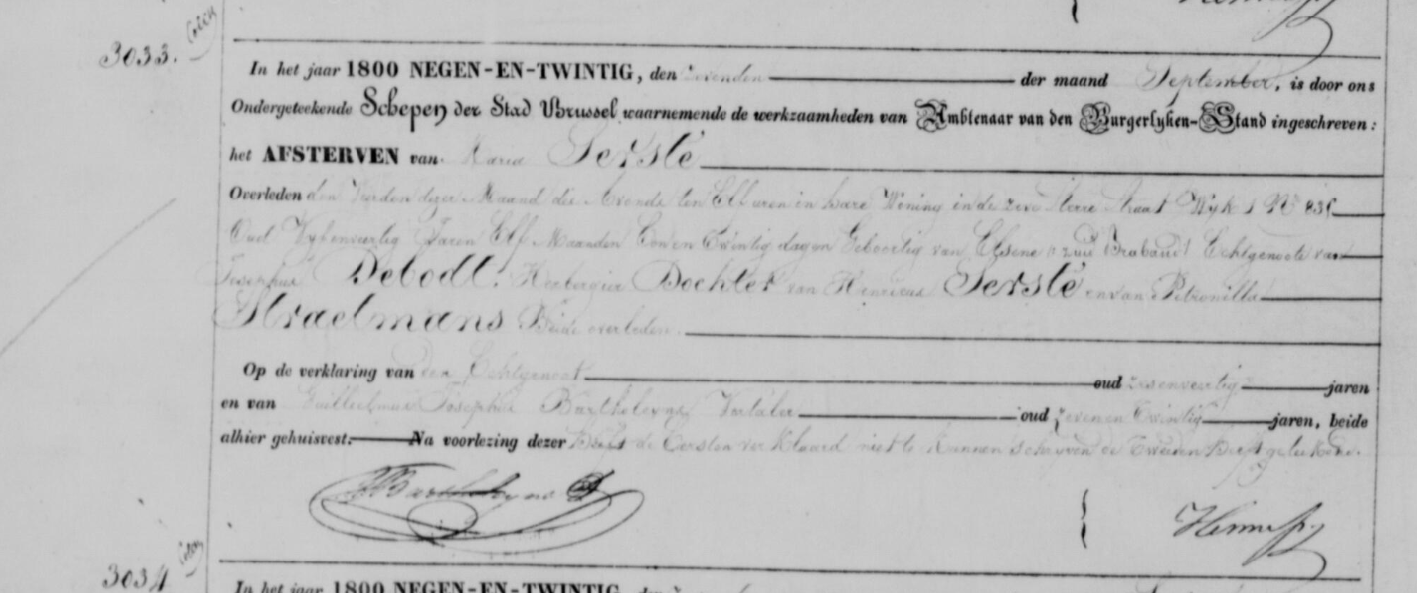 3033.
In het jaar 1800 NEGEN-EN-TWINTIG, den Zevenden der maand September, is door ons
Ondergeteekende Schepen der Stad Brussel waarnemende de werkzaamheden van Ambtenaar van den Burgerlyken-Stand ingeschreven:
het AFSTERVEN van Maria Serste
Overleden den dezer Maand des Avonds ten Elf uren in hare Woning in de straat Wyk 1 No
Oud Vyfenveertig Jaren Elf Maanden Een en Twintig dagen Geboortig van Elsene zuid Braband Echtgenoote van
Josephus Debodt, Herbergier Dochter van Henricus Serste en van Petronilla
Straelmans Beide overleden.
Op de verklaring van den Echtgenoot oud zesenveertig jaren
en van Guillielmus Josephus Bartholeyns oud zevenen Twintig jaren, beide
alhier gehuisvest. Na voorlezing dezer Heeft de Eersten verklaard niet te kunnen schryven de Tweeden Heeft geteekend.
3034
In het jaar 1800 NEGEN-EN-TWINTIG, den